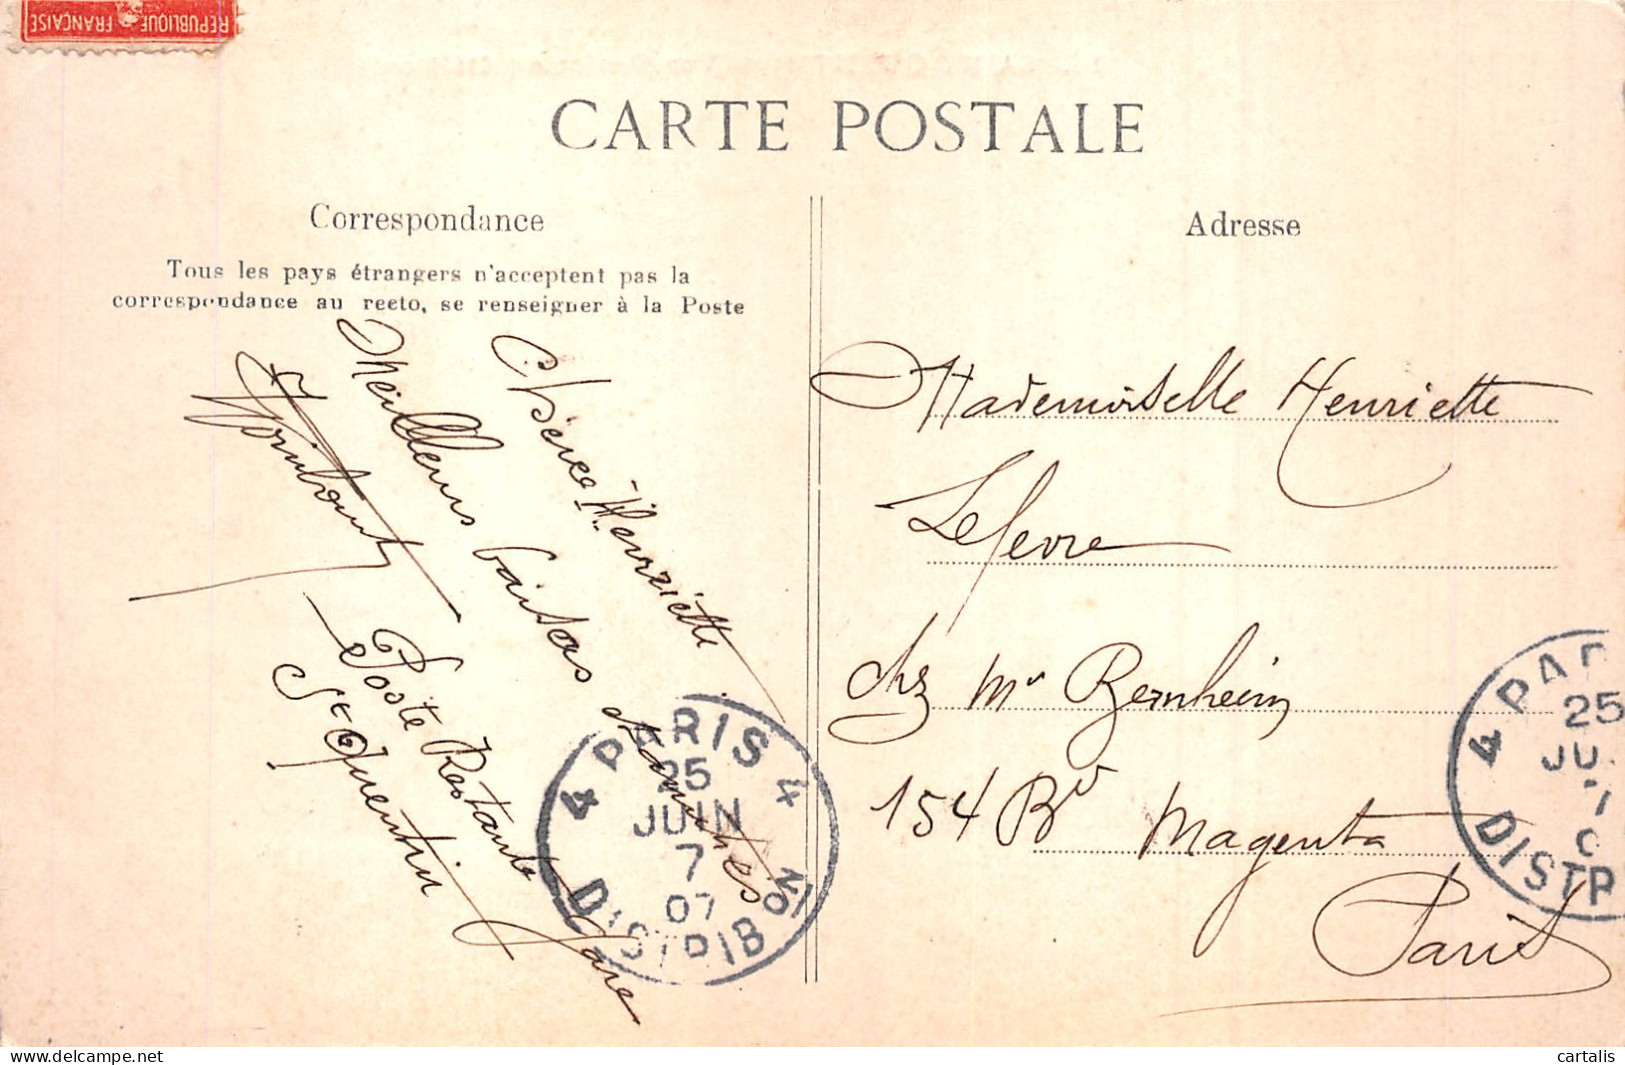 REPUBLIQUE FRANÇAISE
CARTE POSTALE
Correspondance
Tous les pays étrangers n'acceptent pas la
correspondance au recto, se renseigner à la Poste
Adresse
Chère Henriette
Meilleurs baisers
Poste Restante Gare
St Quentin
Mademoiselle Henriette
Lefevre
chez Mr Bernheim
154 Bd Magenta
Paris
4 PARIS 4
25
JUIN
7
07
DISTRIBION
4 PAR
25
JU
7
0
DISTR
www.delcampe.net
cartalis